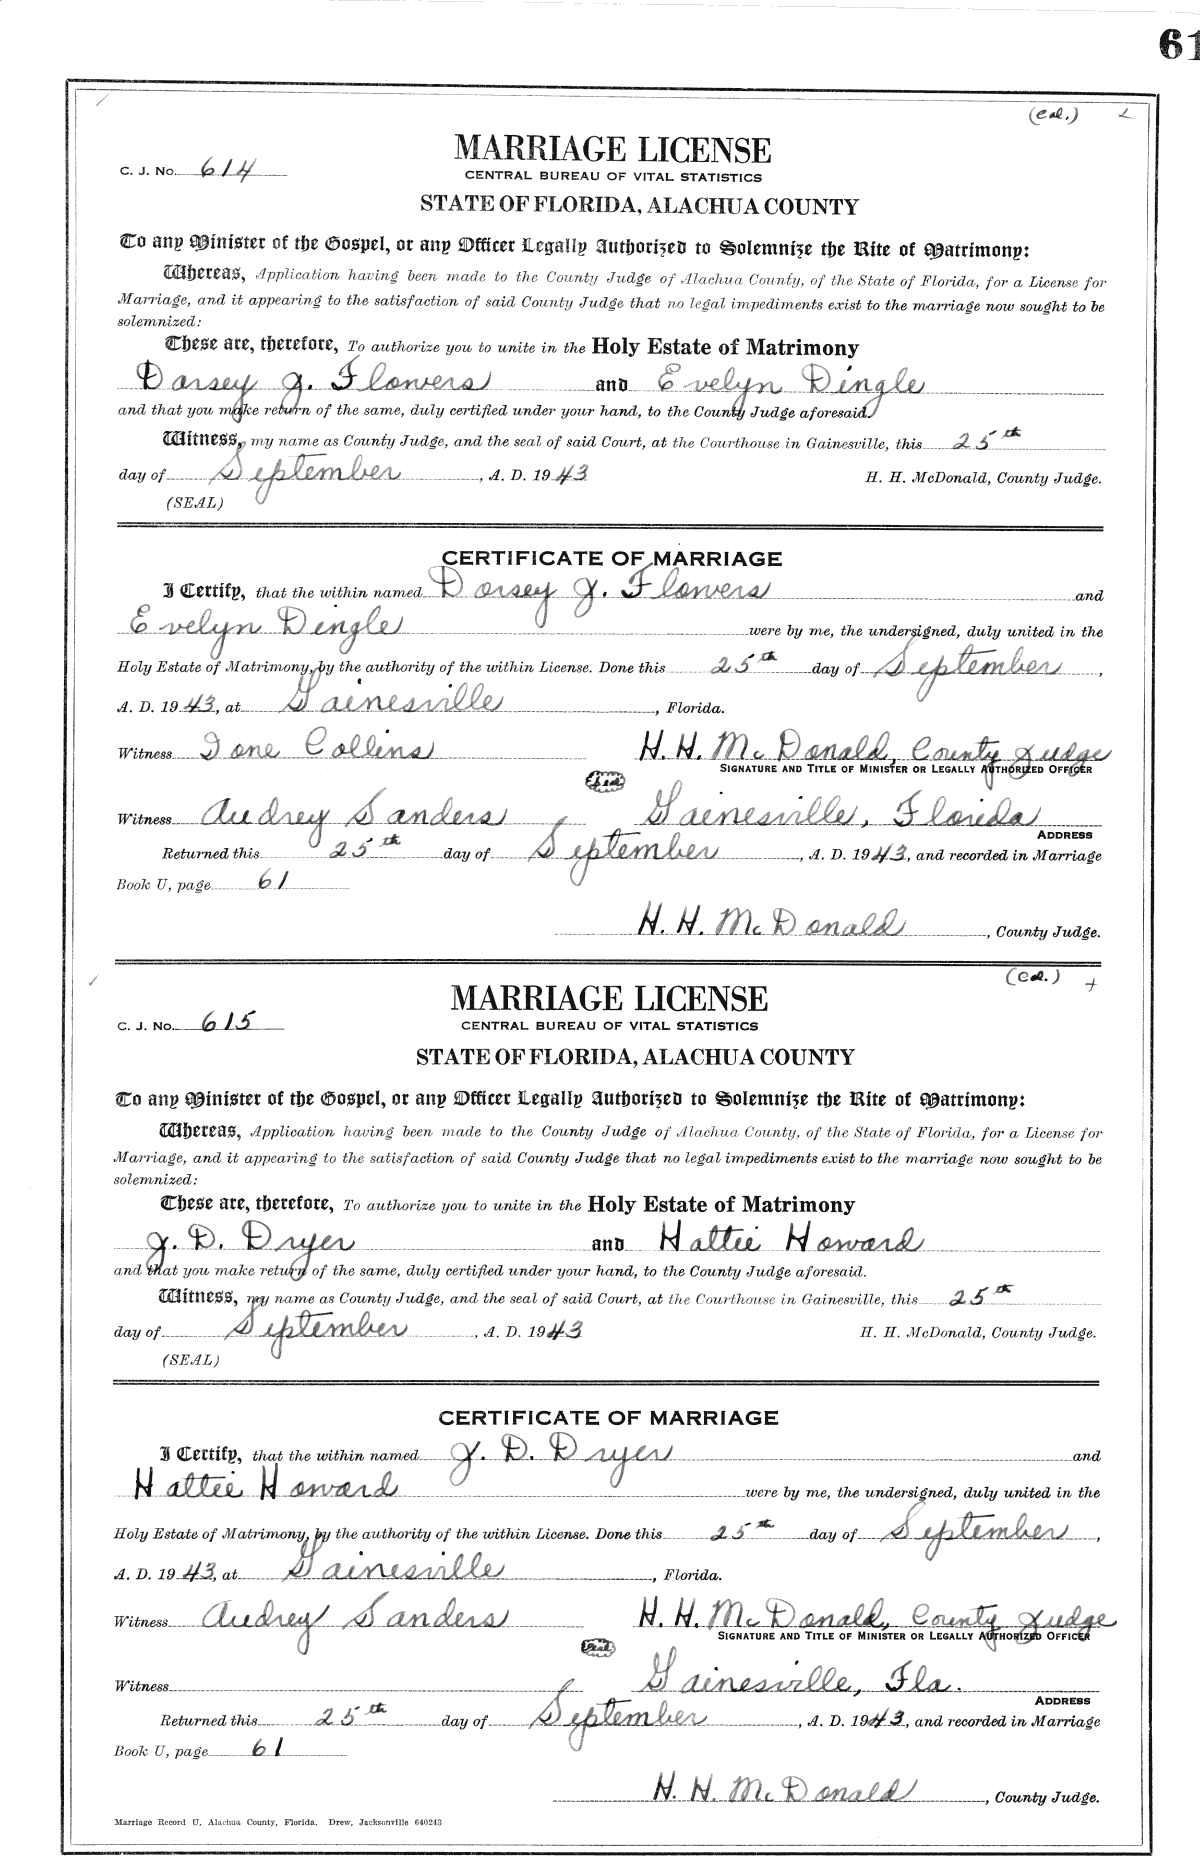 61
(Col.)
MARRIAGE LICENSE
C. J. No. 614
CENTRAL BUREAU OF VITAL STATISTICS
STATE OF FLORIDA, ALACHUA COUNTY
To any Minister of the Gospel, or any Officer Legally Authorized to Solemnize the Rite of Matrimony:
Whereas, Application having been made to the County Judge of Alachua County, of the State of Florida, for a License for
Marriage, and it appearing to the satisfaction of said County Judge that no legal impediments exist to the marriage now sought to be
solemnized:
These are, therefore, To authorize you to unite in the Holy Estate of Matrimony
Dorsey J. Flowers and Evelyn Dingle
and that you make return of the same, duly certified under your hand, to the County Judge aforesaid.
Witness, my name as County Judge, and the seal of said Court, at the Courthouse in Gainesville, this 25th
day of September, A. D. 1943 H. H. McDonald, County Judge.
(SEAL)
CERTIFICATE OF MARRIAGE
I Certify, that the within named Dorsey J. Flowers and
Evelyn Dingle were by me, the undersigned, duly united in the
Holy Estate of Matrimony, by the authority of the within License. Done this 25th day of September,
A. D. 1943, at Gainesville, Florida.
Witness Ione Collins H. H. McDonald, County Judge
SIGNATURE AND TITLE OF MINISTER OR LEGALLY AUTHORIZED OFFICER
Seal
Witness Audrey Sanders Gainesville, Florida
ADDRESS
Returned this 25th day of September, A. D. 1943, and recorded in Marriage
Book U, page 61
H. H. McDonald, County Judge.
(Col.)
MARRIAGE LICENSE
C. J. No. 615
CENTRAL BUREAU OF VITAL STATISTICS
STATE OF FLORIDA, ALACHUA COUNTY
To any Minister of the Gospel, or any Officer Legally Authorized to Solemnize the Rite of Matrimony:
Whereas, Application having been made to the County Judge of Alachua County, of the State of Florida, for a License for
Marriage, and it appearing to the satisfaction of said County Judge that no legal impediments exist to the marriage now sought to be
solemnized:
These are, therefore, To authorize you to unite in the Holy Estate of Matrimony
J. D. Dryer and Hattie Howard
and that you make return of the same, duly certified under your hand, to the County Judge aforesaid.
Witness, my name as County Judge, and the seal of said Court, at the Courthouse in Gainesville, this 25th
day of September, A. D. 1943 H. H. McDonald, County Judge.
(SEAL)
CERTIFICATE OF MARRIAGE
I Certify, that the within named J. D. Dryer and
Hattie Howard were by me, the undersigned, duly united in the
Holy Estate of Matrimony, by the authority of the within License. Done this 25th day of September,
A. D. 1943, at Gainesville, Florida.
Witness Audrey Sanders H. H. McDonald, County Judge
SIGNATURE AND TITLE OF MINISTER OR LEGALLY AUTHORIZED OFFICER
Seal
Witness Gainesville, Fla.
ADDRESS
Returned this 25th day of September, A. D. 1943, and recorded in Marriage
Book U, page 61
H. H. McDonald, County Judge.
Marriage Record U, Alachua County, Florida. Drew, Jacksonville 640243